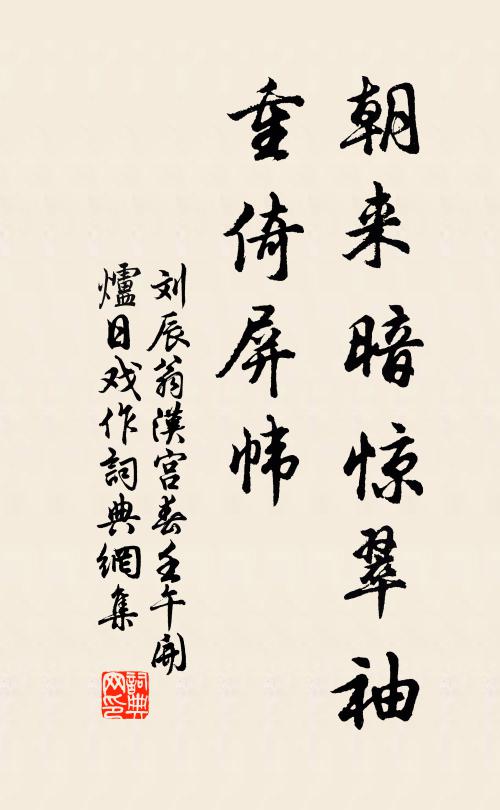 朝来暗惊翠袖
重倚屏帏
刘辰翁漢宫春壬午開
爐日戏作詞典網集
詞典网印